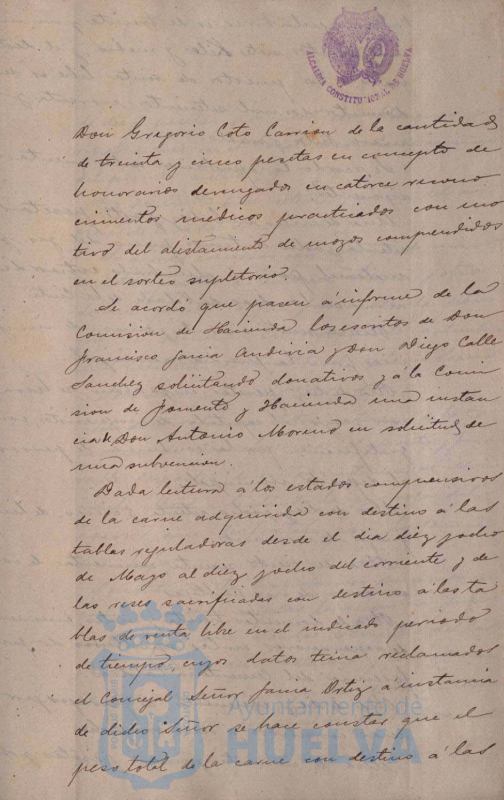 ALCALDIA CONSTITUCIONAL DE HUELVA
Don Gregorio Coto Carrion de la cantidad
de treinta y cinco pesetas en concepto de
honorarios devengados en catorce recono
cimientos médicos practicados con mo
tivo del alistamiento de mozos comprendidos
en el sorteo supletorio.
Se acordó que pasen á informe de la
Comision de Hacienda los escritos de Don
Francisco Garcia y Don Diego Calle
Sanchez solicitando donativos y á la Comi
sion de Fomento y Hacienda una instan
cia de Don Antonio Moreno en solicitud de
una subvencion.
Dada lectura á los estados comprensivos
de la carne adquirida con destino á las
tablas reguladoras desde el dia diez y ocho
de Mayo al diez y ocho del corriente y de
las reses sacrificadas con destino á las ta
blas de venta libre en el indicado periodo
de tiempo, cuyos datos tenia reclamados
el Concejal Señor Garcia Ortiz, a instancia
de dicho Señor se hace constar que el
peso total de la carne con destino á las
Ayuntamiento de
HUELVA